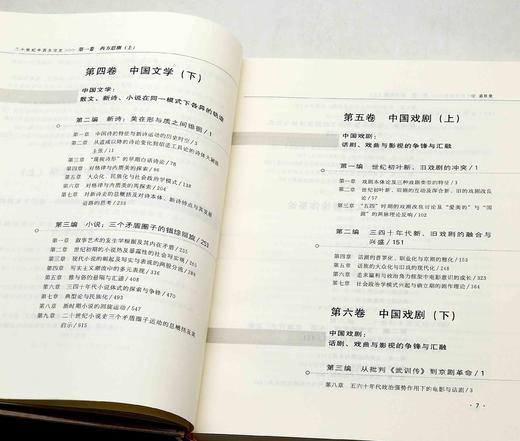 二十世纪中西文论史 >>>> 第一卷 西方思潮（上）
第四卷 中国文学（下）
中国文学：
散文、新诗、小说在同一模式下各异的轨迹
第二编 新诗：美在形与质之间徘徊/1
第一章 中国诗的特征与新诗运动的历史时空/3
第二章 从道咸以降的诗论变化到绍述工具论的诗体大解放
主张/11
第三章 “蓬拔诗形”的早期白话诗论/78
第四章 对格律与内质美的探索/86
第五章 大众化、民族化与社会政热学模式/138
第六章 对格律与内质美的再探索/204
第七章 对新诗走的总概括及对诗本体、新诗特点与其发展
道路的思考/233
第三编 小说：三个矛盾圈子的错综回旋/253
第一章 叙事艺术的发生学根据及其内在矛盾/255
第二章 世纪初期的小说热及暴露性的社会与实境/265
第三章 现代小说的崛起及写实与表戚的两股分流/289
第四章 写实主义潮流中的多元表现/336
第五章 雅与俗的悬隔与汇通/408
第六章 三四十年代小说体式的探索与争锋/470
第七章 典型论与民族化/493
第八章 新时期小说的回旋运动/547
第九章 二十个世纪小说走三个矛盾圈子运动的总概括及其
启示/615
总目录
第五卷 中国戏剧（上）
中国戏剧：
话剧、戏曲与影视的争锋与汇融
第一编 世纪初叶新、旧戏剧的冲突/1
第一章 戏剧本体论及三种戏剧类型的特征/3
第二章 世纪初叶新、旧剧的互动及择合新、旧的戏剧改良
论/57
第三章 “五四”时期的戏剧改良讨论及“爱美的”与“国
剧”的两脉理论反响/102
第二编 三四十年代新、旧戏剧的融合与
兴盛/151
第四章 话剧的普罗化、职业化与京剧的雅化/153
第五章 话族的大众化与旧戏的现代化/248
第六章 追求赢利与政治角力框架中电影意识的成长/323
第七章 社会政治学模式兴起与确立期的剧作理论/360
第六卷 中国戏剧（下）
中国戏剧：
话剧、戏曲与影视的争锋与汇融
第三编 从批判《武训传》到京剧革命/1
第八章 五六十年代政治强势作用下的电影与话剧/3
7